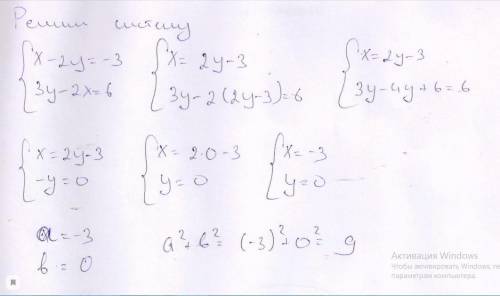 Решим систему
{ x - 2y = -3   { x = 2y - 3   { x = 2y - 3
{ 3y - 2x = 6   { 3y - 2(2y - 3) = 6   { 3y - 4y + 6 = 6
{ x = 2y - 3   { x = 2·0 - 3   { x = -3
{ -y = 0   { y = 0   { y = 0
a = -3   a² + b² = (-3)² + 0² = 9
b = 0
Активация Windows
Чтобы активировать Windows, пе
параметрам компьютера.